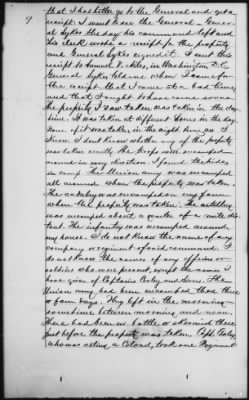 9
that I had better go to the General and get a
receipt. I went to see the General - Gener-
al Sykes the day his command left and
his clerk wrote a receipt for the property
and General Sykes signed it. I sent this
receipt to Samuel V. Niles, in Washington D.C.
General Sykes told me when I came for
the receipt that I came at a bad time,
and that I ought to have come sooner.
The property I saw taken was taken in the day
time. It was taken at different hours in the day.
None of it was taken in the night time, as I
know. I don't know whether any of this property
was taken secretly. The troops were encamped
around in every direction. I found
in camp. The Union army was encamped
all around when this property was taken.
The cavalry was encamped on my farm
when the property was taken. The artillery
was encamped about a quarter of a mile dis-
tant. The infantry was encamped around
my house. I do not know the name of any
company or regiment of said command. I
do not know the names of any officers or
soldiers who were present, except the names I
have given of Captains Corley and Evans. The
Union army had been encamped there three
or four days. They left in the morning
sometime between morning and noon.
There had been no battle or skirmish there
just before the property was taken. Capt. Corley,
who was acting as Colonel, took one Regiment